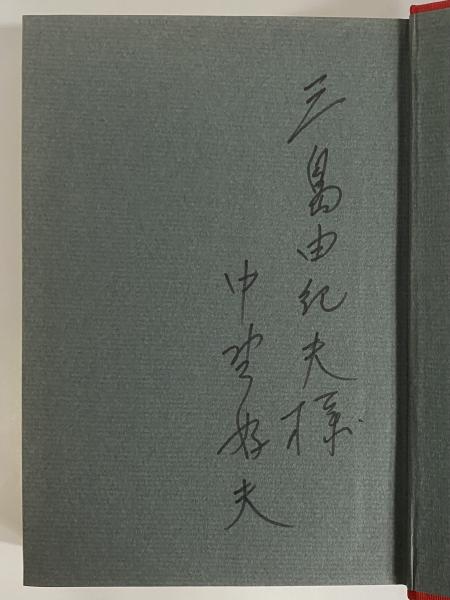 三島由紀夫様
中野好夫